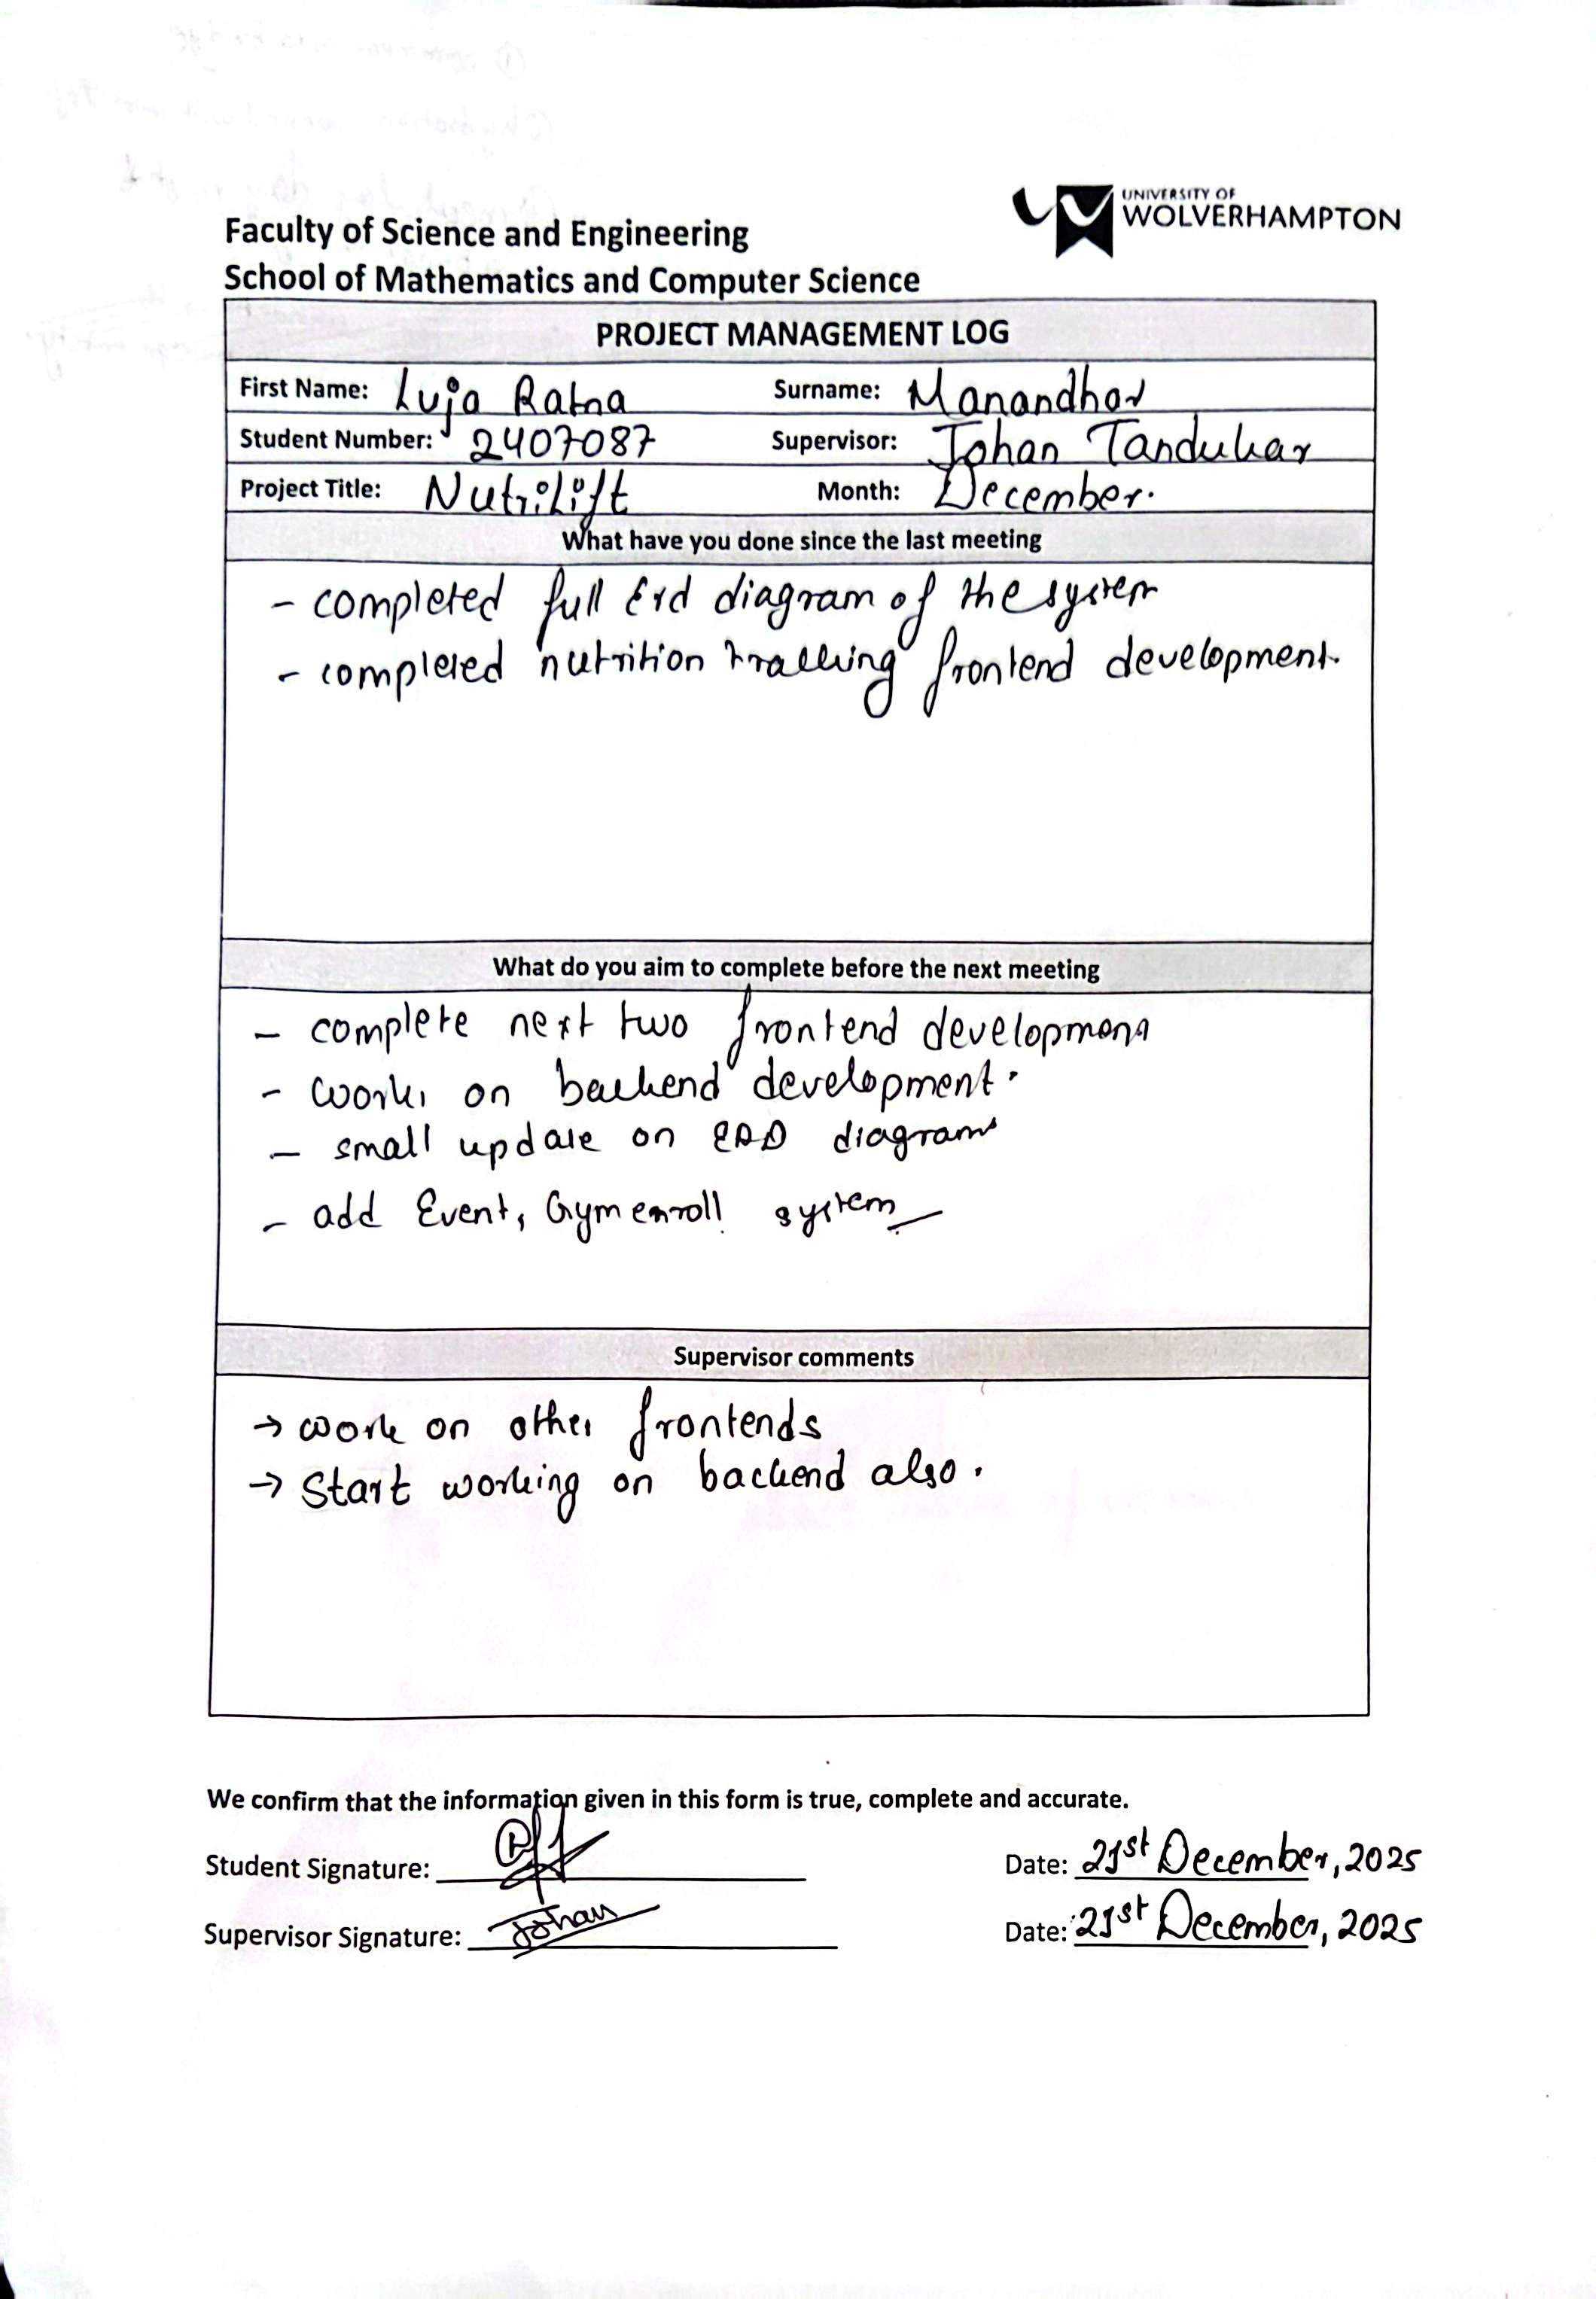 UNIVERSITY OF
WOLVERHAMPTON
Faculty of Science and Engineering
School of Mathematics and Computer Science
PROJECT MANAGEMENT LOG
First Name: Luja Ratna Surname: Manandhar
Student Number: 2407087 Supervisor: Johan Tandukar
Project Title: NutriLift Month: December.
What have you done since the last meeting
- completed full Erd diagram of the system
- completed nutrition tracking frontend development.
What do you aim to complete before the next meeting
- complete next two frontend development
- work on backend development.
- small update on ERD diagram
- add Event, Gym enroll system
Supervisor comments
→ work on other frontends
→ Start working on backend also.
We confirm that the information given in this form is true, complete and accurate.
Student Signature: Date: 21st December, 2025
Supervisor Signature: Johan Date: 21st December, 2025